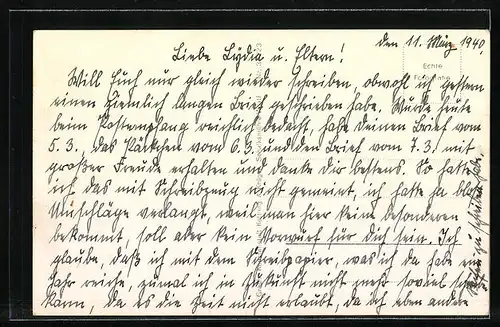 den 11. März 1940.
Echte
Fotografie
Liebe Lydia u. Eltern!
Will Euch nur gleich wieder schreiben, obwohl ich gestern
einen ziemlich langen Brief geschrieben habe. Wurde heute
beim Postempfang reichlich bedacht, habe deinen Brief vom
5.3., das Päckchen vom 6.3. und den Brief vom 7.3. mit
großer Freude erhalten und danke dir bestens. So hatte
ich das mit Schreibzeug nicht gemeint, ich hatte ja bloß
Umschläge verlangt, weil man hier keine besonderen
bekommt, soll aber kein Vorwurf für dich sein. Ich
glaube, daß ich mit dem Schreibpapier, was ich da habe ein
Jahr reiche, zumal ich in Zukunft nicht mehr soviel schreiben
kann, da es die Zeit nicht erlaubt, da ich eben andere
zu schreiben habe.